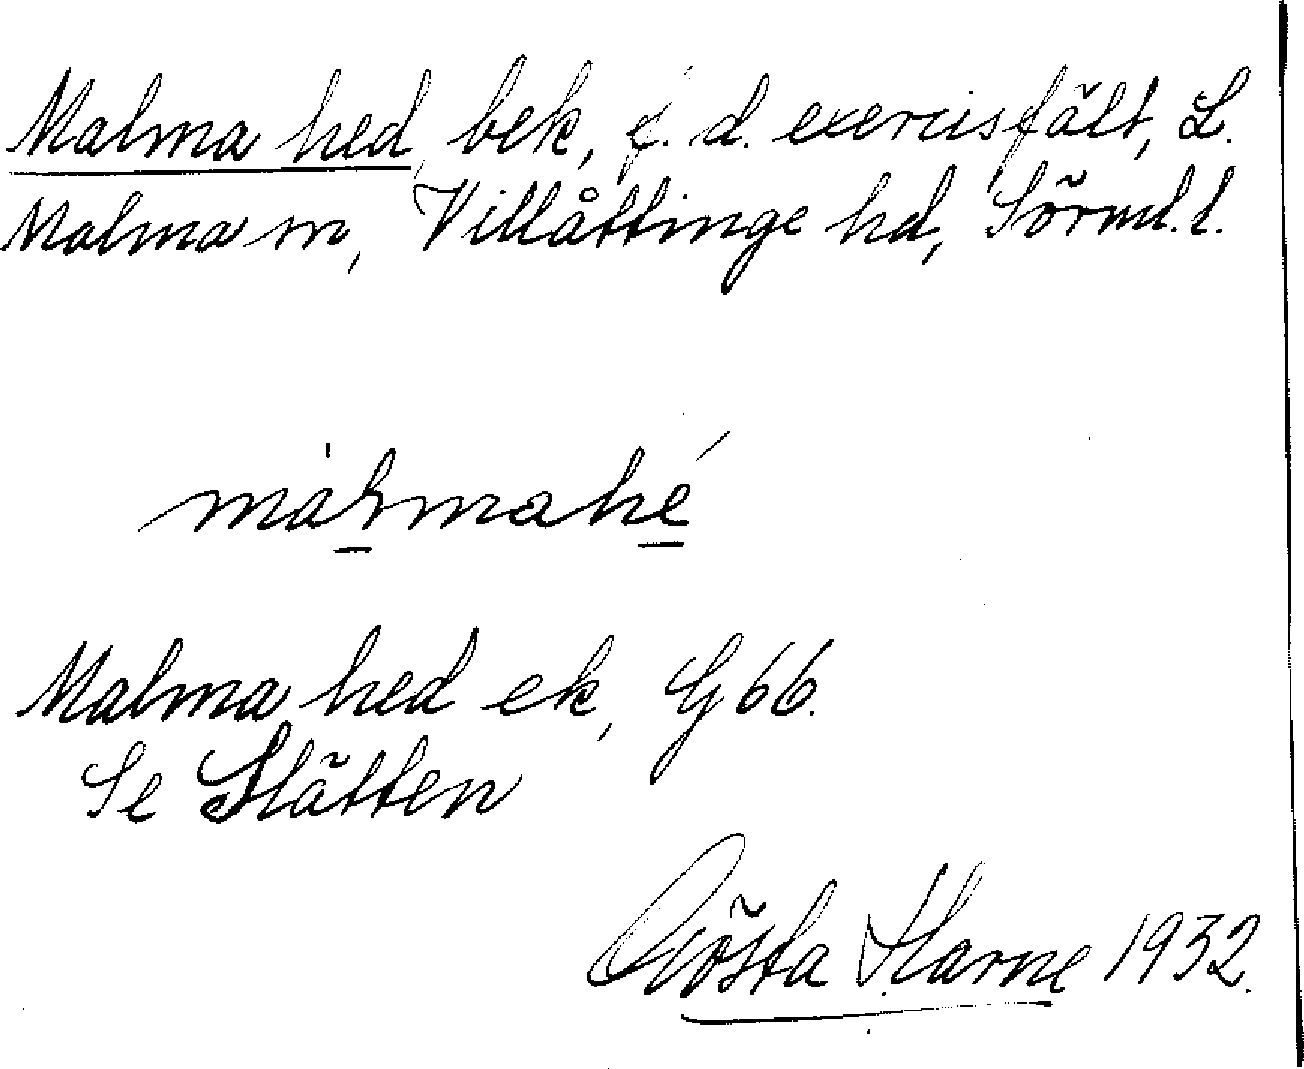 Malma hed bek, f. d. exercisfält, L.
Malma sn, Villåttinge hd, Sörml. l.
màlmahé
Malma hed ek, G 66.
Se Slätten
Gösta 1932.